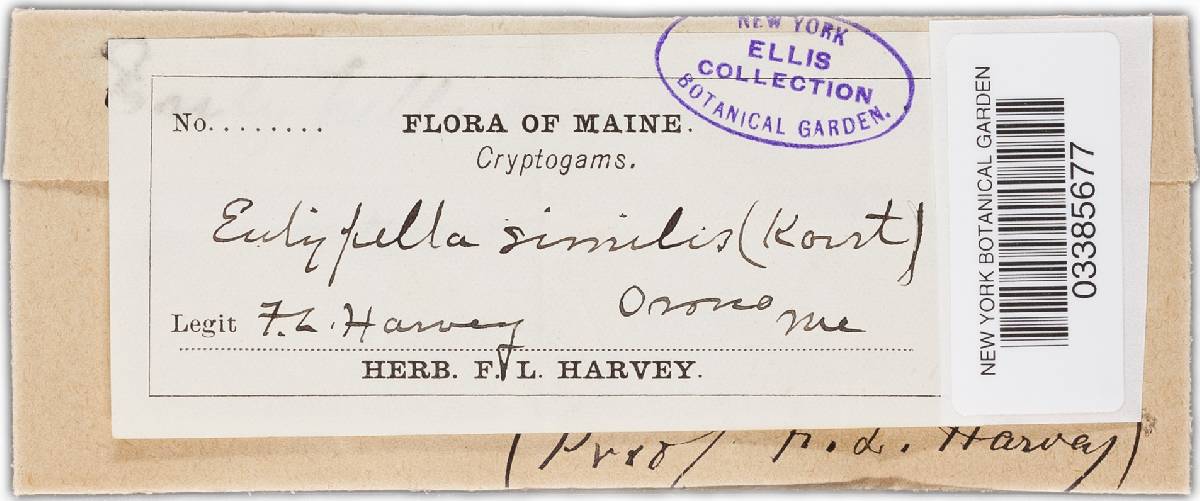 NEW YORK
ELLIS
COLLECTION
BOTANICAL GARDEN.
No........ FLORA OF MAINE.
Cryptogams.
Eutypella similis (Karst)
Orono Me
Legit F. L. Harvey
HERB. F. L. HARVEY.
(Prof F. L. Harvey)
NEW YORK BOTANICAL GARDEN
03385677